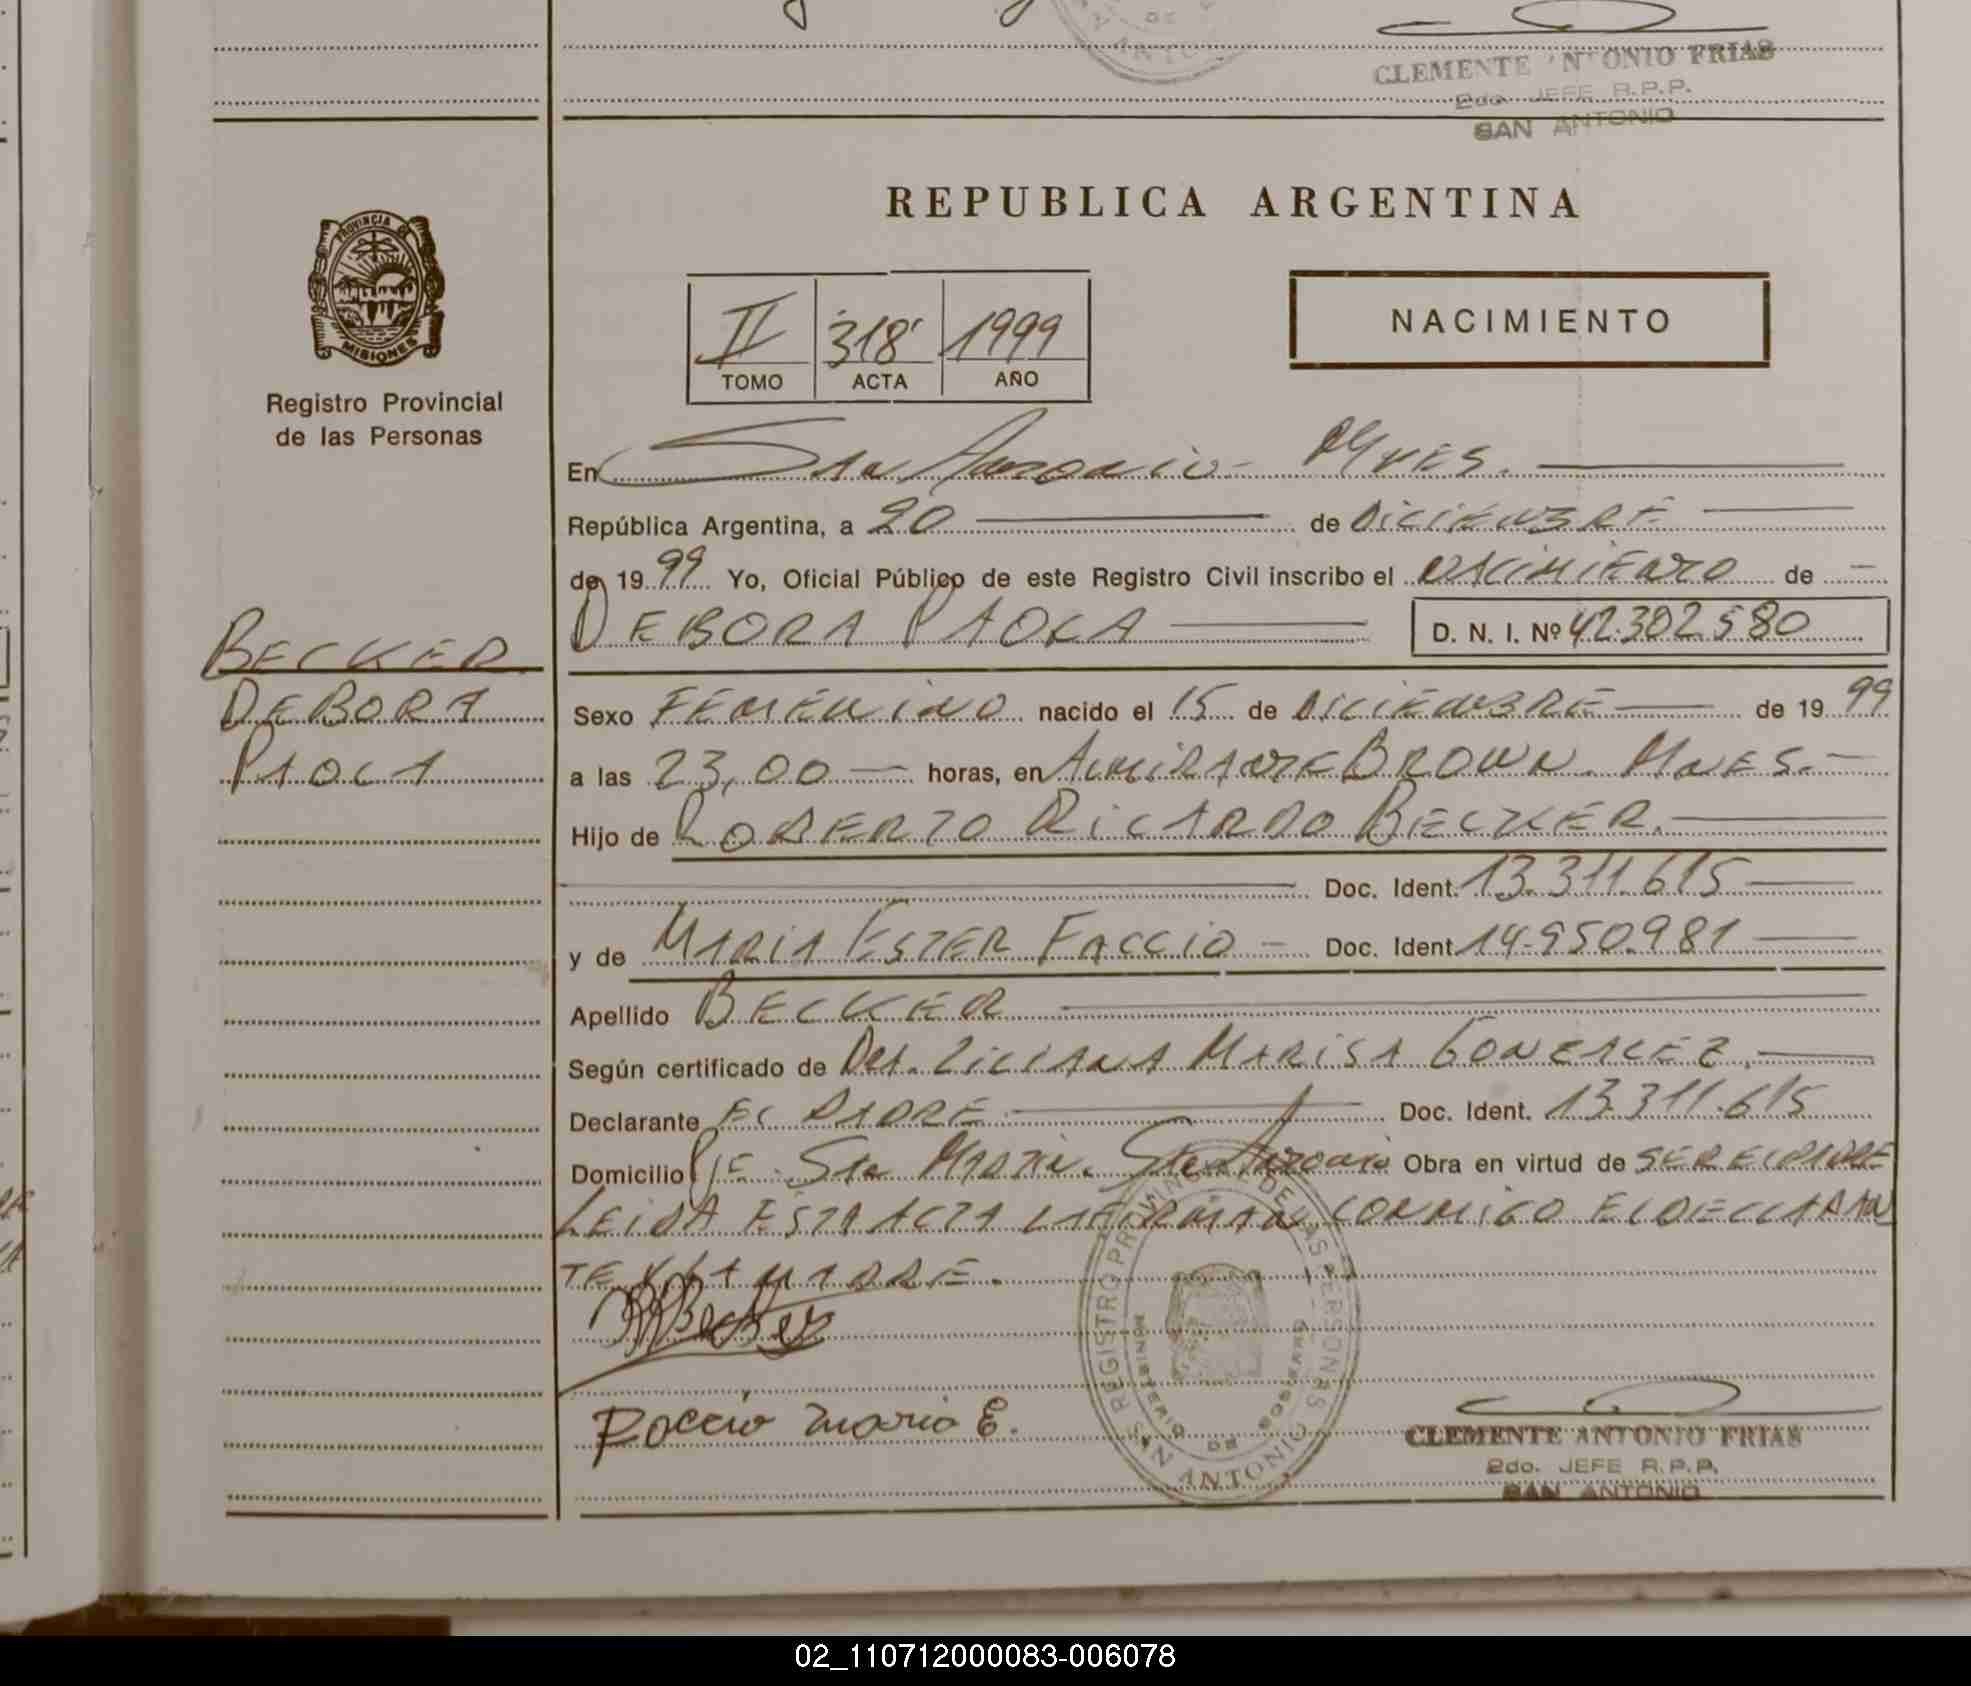 CLEMENTE ANTONIO FRIAS
2do. JEFE R.P.P.
SAN ANTONIO
PROVINCIA DE
MISIONES
Registro Provincial
de las Personas
REPUBLICA ARGENTINA
II 318 1999
TOMO ACTA AÑO
NACIMIENTO
En San Antonio - Mnes.
República Argentina, a 20 de DiCiEMBRE
de 1999 Yo, Oficial Público de este Registro Civil inscribo el NACiMiENTO de
DEBORA PAOLA
D. N. I. Nº 42.302.580
BECKER
DEBORA
PAOLA
Sexo FEMENiNO nacido el 15 de DiCiEMBRE de 1999
a las 23,00 horas, en ALMiRANTE BROWN. MNES.
Hijo de ROBERTO RiCARDO BECKER.
Doc. Ident. 13.311.615
y de MARiA ESTER FACCiO - Doc. Ident. 14.950.981
Apellido BECKER
Según certificado de DRA. LiLiANA MARiSA GONZALEZ.
Declarante EL PADRE Doc. Ident. 13.311.615
Domicilio PJE. San Martin. San Antonio Obra en virtud de SER EL PADRE
LEiDA ESTA ACTA LA FiRMAN CONMiGO EL DECLARAN
TE Y LA MADRE.
Faccio Maria E.
REGISTRO PROVINCIAL DE LAS PERSONAS
MINISTERIO DE GOBIERNO
SAN ANTONIO
CLEMENTE ANTONIO FRIAS
2do. JEFE R.P.P.
SAN ANTONIO
02_110712000083-006078